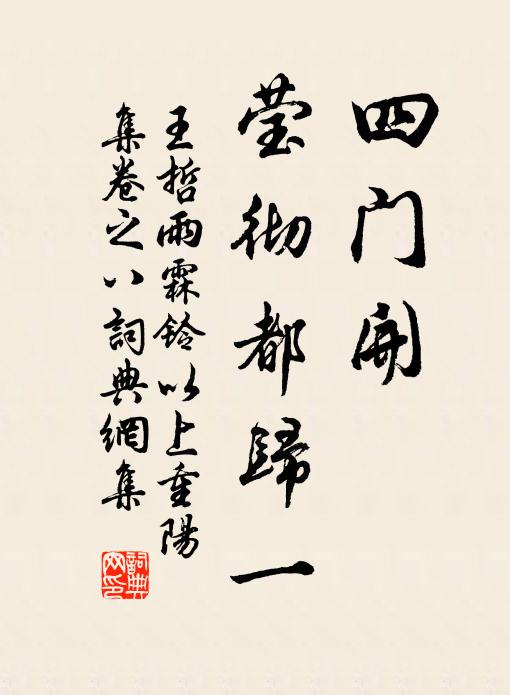 四门開
莹彻都歸一
王哲雨霖铃以上重陽
集卷之八詞典網集
詞典网印